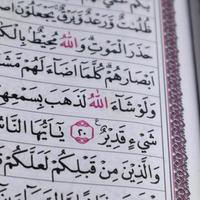 ظُلُمَٰتٌ وَرَعْدٌ وَبَرْقٌ يَجْعَلُونَ
حَذَرَ ٱلْمَوْتِ ۚ وَٱللَّهُ مُحِيطٌۢ بِٱلْكَ
أَبْصَٰرَهُمْ ۖ كُلَّمَآ أَضَآءَ لَهُم مَّشَ
وَلَوْ شَآءَ ٱللَّهُ لَذَهَبَ بِسَمْعِهِ
شَىْءٍ قَدِيرٌ ٢٠ يَٰٓأَيُّهَا ٱلنَّا
وَٱلَّذِينَ مِن قَبْلِكُمْ لَعَلَّكُمْ